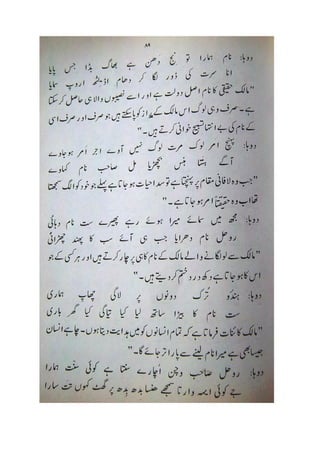 ۸۹
دوہا: نام ہمارا تو نج دھن ہے بھاگ بڈا جس پایا
انا سرت کی ڈور لگا کر دھام سمایا
"مالک حقیقی کا نام اصل دولت ہے اور اسے نصیبوں والا ہی حاصل کر سکتا
ہے۔ صرف وہی لوگ اس مالک کے کو پا سکتے ہیں جو صرف اور صرف اسی
کے نام کی بے انتہا تسبیح خوانی کرتے ہیں۔"
دوہا: پہنچ امر لوک مرت لوک نہیں آوے اجر اَمر ہو جاوے
آگے ہنسا ہنس مل صاحب نام کہاوے
"جب وہ لافانی مقام پر پہنچتا ہے تو سدا حیات ہو جاتا ہے پہلے جو خود کو الگ سمجھتا
تھا اب وہ حقیقتاً امر ہو جاتا ہے۔"
دوہا: مجھ میں سمائے میرا ہوئے رہے پھیرے ست نام دہائی
روحل نام دھرایا جب ہی آئے سب کا پھند چھڑائی
"مالک سے لو لگانے والے مالک کے نام کا ہی پرچار کرتے ہیں اور ہر کسی کے جو
اس کا ہو جاتا ہے دکھ درد ختم کر دیتے ہیں۔"
دوہا: ہندُو تُرک دونوں پر لاگی چھاپ ہماری
ست نام کا بیڑا ساتھ لیا کیا گیا کی گھر باری
"مالک کائنات فرماتا ہے کہ تمام انسانوں کو میں ہدایت دیتا ہوں۔ چاہے انسان
جیسا بھی ہے میرا نام لینے سے پار اتر جائے گا۔"
دوہا: روحل صاحب وچن اُچارے سنتا ہے کوئی سنّت ہمارا
جے کوئی وارتا سمجھے پر گھٹ کہوں تت سارا